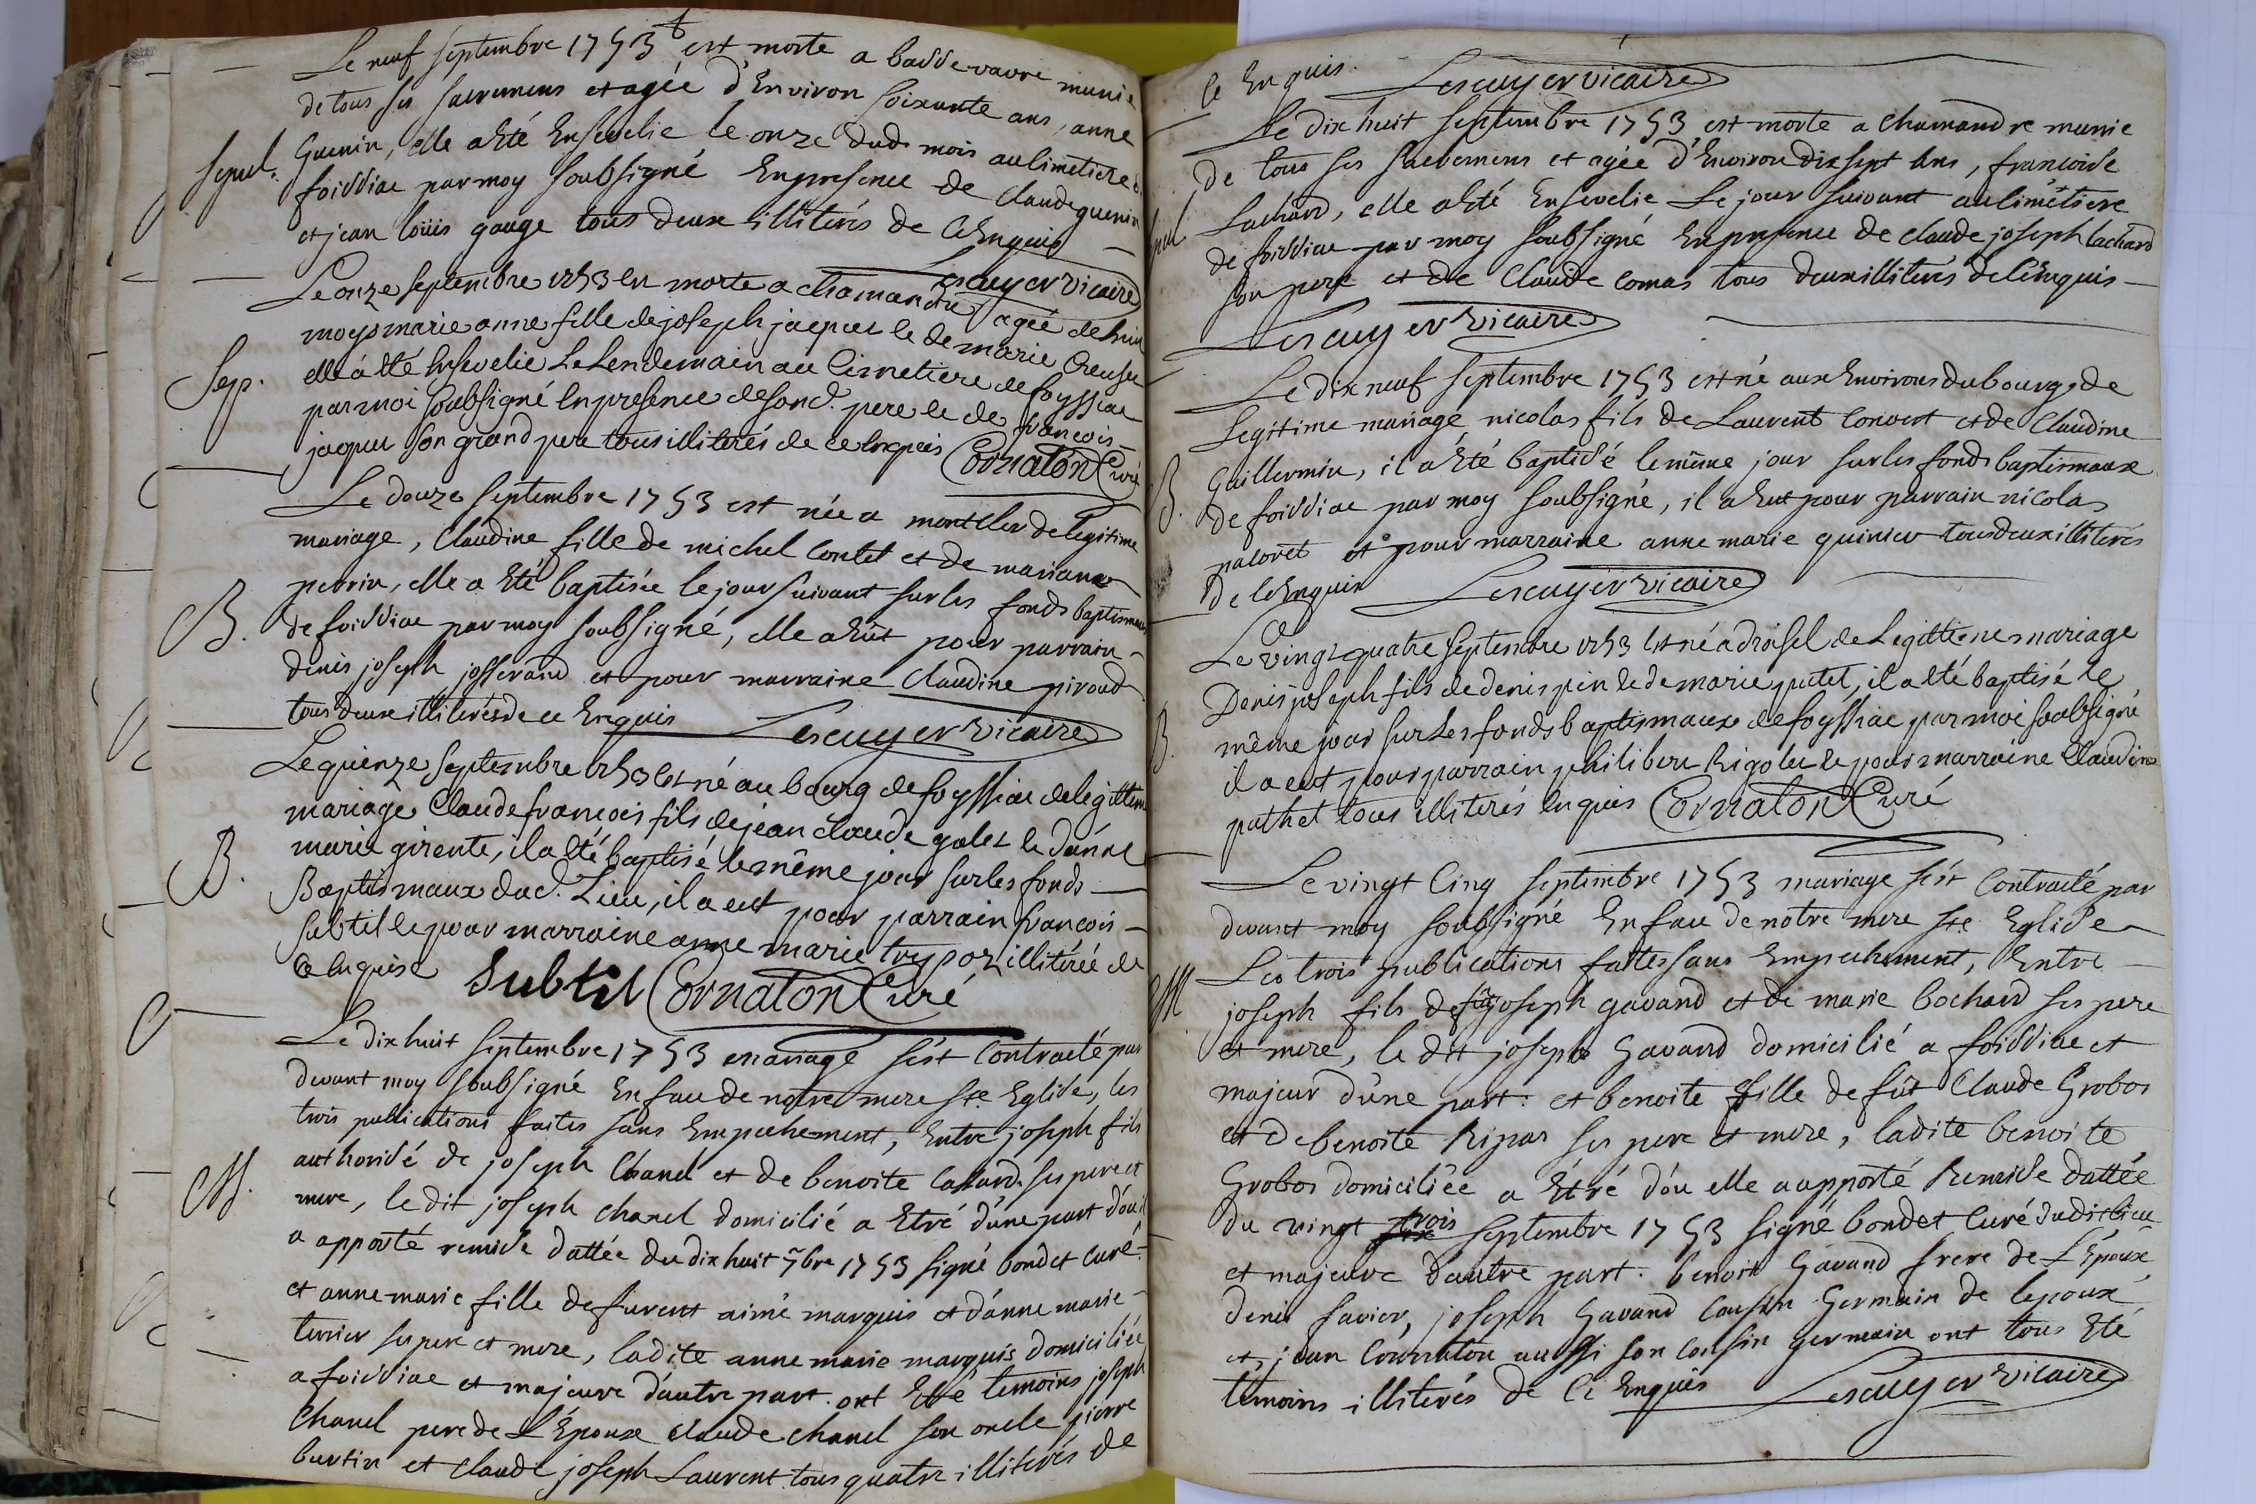 Le neuf septembre 1753 est morte a basse-vavre munie
de tous ses sacremens et agée d'Environ soixante ans, anne
Guenin, elle a Eté Ensevelie le onze dud. mois au Cimetiere de
sepul.
foissiac par moy soubsigné En presence de Claude guenin
et jean loüis gauge tous deux illiterés de Ce Enquis
Lescuyer vicaire
Le onze septembre 1753 est morte a chamandre agée de huit
moys marie anne fille de joseph jacquet & de marie Creuse
sep.
elle a êté Ensevelie Le Lendemain au Cimetiere de foyssiac
par moi soubsigné En presence de son d. pere & de françois
jaquet son grand pere tous illiterés de ce Enquis Cornaton Curé
Le douze septembre 1753 est née a montcler de legitime
mariage, Claudine fille de michel Contet et de marianne
perrin, elle a Eté baptisée le jour suivant sur les fonds baptismaux
B.
de foissiac par moy soubsigné, elle a Eüt pour parrain
denis joseph josserand et pour marraine Claudine piroud
tous deux illiterés de ce Enquis Lescuyer vicaire
Le quinze septembre 1753 est né au bourg de foyssiac de legittime
mariage Claude françois fils de jean Claude galet & d'anne
marie girente, il a êté baptisé le même jour sur les fonds
B.
Baptismaux dud. Lieu, il a eut pour parrain françois
subtil & pour marraine anne marie trypoz illitérée de
ce Enquise Subtil Cornaton Curé
Le dix huit septembre 1753 mariage s'est Contracté par
devant moy soubsigné En face de notre mere Ste. Eglise, les
trois publications faites sans Empechement, Entre joseph fils
authorisé de joseph Chanel et de benoite Catard ses pere et
M.
mere, le dit joseph chanel domicilié a Etré d'une part d'ou il
a apporté remise dattée du dix huit 7bre 1753 signé bondet Curé
et anne marie fille de furent aimé marquis et d'anne marie
terrier ses pere et mere, ladite anne marie marquis domiciliée
a foissiac et majeure d'autre part. ont Eté temoins joseph
Chanel pere de L'Epoux Claude chanel son oncle pierre
burtin et Claude joseph Laurent tous quatre illiterés de
Ce Enquis. Lescuyer vicaire
Le dix huit septembre 1753 est morte a Chamandre munie
de tous ses sacremens et agée d'Environ dix sept Ans, francoise
Lachard, elle a Eté Ensevelie Le jour suivant au Cimetiere
spul
de foissiac par moy soubsigné En presence de Claude joseph lachard
son pere et de Claude comas tous deux illiterés de Ce Enquis
Lescuyer vicaire
Le dix neuf septembre 1753 est né aux Environs du bourg, de
Legitime mariage nicolas fils de Laurent Convert et de Claudine
Guillermin, il a Eté baptisé le même jour sur les fonds baptismaux
B.
de foissiac par moy soubsigné, il a Eut pour parrain nicolas
patoret et pour marraine anne marie quinier tous deux illiterés
de Ce Enquis Lescuyer vicaire
Le vingt quatre septembre 1753 est né a droisel de Legittime mariage
Denis joseph fils de denis pin & de marie putet, il a êté baptisé le
B.
même jour sur Les fonds baptismaux de foyssiac par moi soubsigné
il a eut pour parrain philibert Rigolet & pour marraine Claudine
puthet tous illiterés Enquis Cornaton Curé
Le vingt Cinq septembre 1753 mariage s'est Contracté par
devant moy soubsigné En face de notre mere Ste. Eglise
Les trois publications faites sans Empechement, Entre
M.
joseph fils de fût joseph gavand et de marie bochard ses pere
et mere, le dit joseph Gavand domicilié a foissiac et
majeur d'une part. et benoite fille de fût Claude Grobos
et de benoite Ripas ses pere et mere, ladite benoite
Grobos domiciliée a Etré d'ou elle a apporté Remise dattée
du vingt trois septembre 1753 signé bondet Curé dudit lieu
et majeure d'autre part. benoit Gavand frere de L'Epoux
denis savier, joseph Gavand Cousin Germain de lepoux
et jean Cornaton aussi son Cousin germain ont tous Eté
temoins illiterés de Ce Enquis Lescuyer vicaire